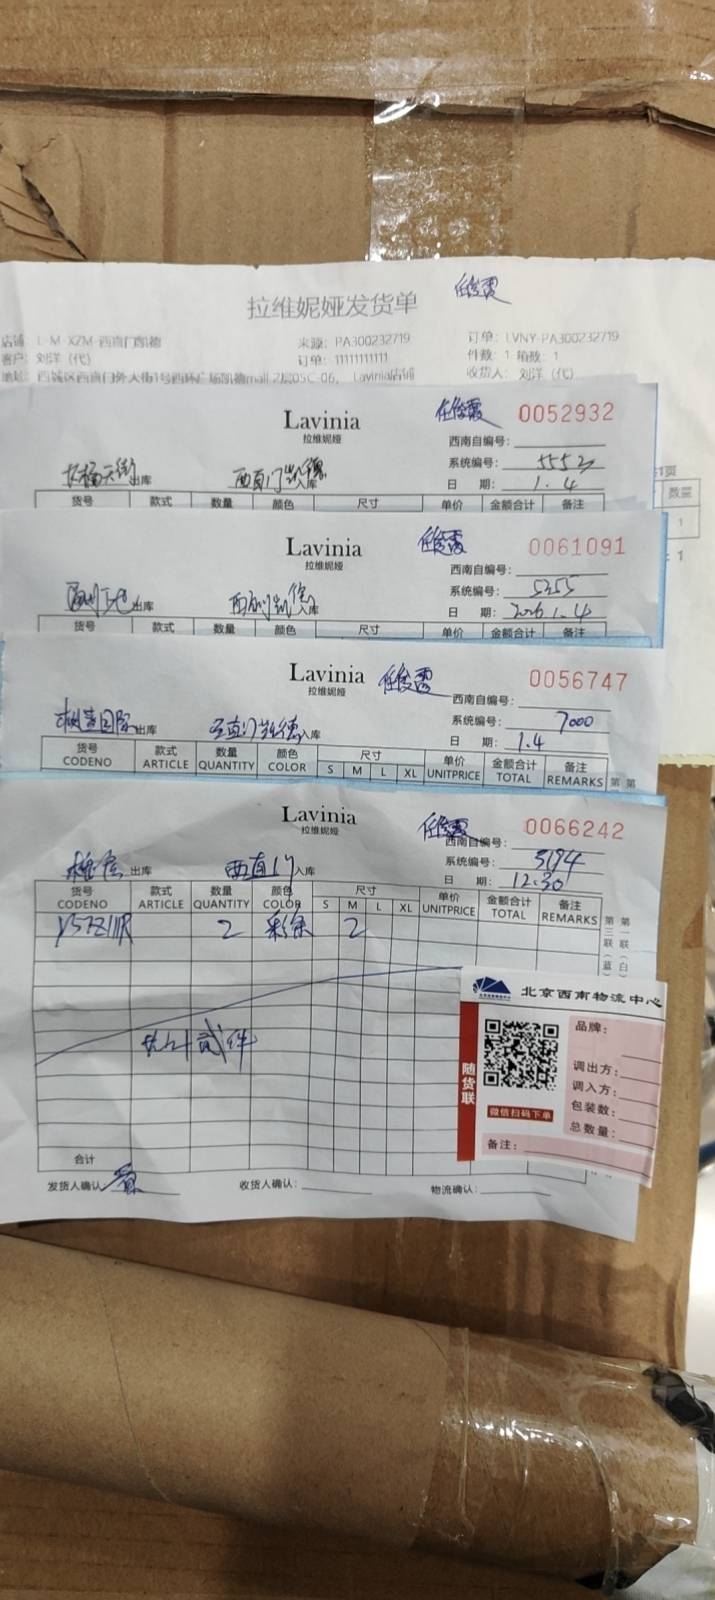 拉维妮娅发货单
店铺: L-M-XZM-西直门凯德 来源: PA300232719 订单: LVNY-PA300232719
客户: 刘洋 (代) 订单: 11111111111 件数: 1 箱数: 1
地址: 西城区西直门外大街1号西环广场凯德mall 2层05C-06, Lavinia店铺 收货人: 刘洋 (代)
数量
1
Lavinia 0052932
拉维妮娅
西南自编号:
系统编号: 5552
长楹天街出库 西直门凯德入库
日 期: 1.4
货号 款式 数量 颜色 尺寸 单价 金额合计 备注
Lavinia 0061091
拉维妮娅
西南自编号:
系统编号: 5255
出库 西直门凯德入库
日 期: 2026.1.4
货号 款式 数量 颜色 尺寸 单价 金额合计 备注
Lavinia 0056747
拉维妮娅
西南自编号:
系统编号: 7000
国际出库 西直门凯德入库
日 期: 1.4
货号 款式 数量 颜色 尺寸 单价 金额合计 备注
CODENO ARTICLE QUANTITY COLOR S M L XL UNITPRICE TOTAL REMARKS
Lavinia 0066242
拉维妮娅
西南自编号:
系统编号: 5194
出库 西直门入库
日 期: 12.30
货号 款式 数量 颜色 尺寸 单价 金额合计 备注
CODENO ARTICLE QUANTITY COLOR S M L XL UNITPRICE TOTAL REMARKS
2 彩条 2
共计贰件
合计
发货人确认: 收货人确认: 物流确认:
第一联(白)
第三联(蓝)
北京西南物流中心
随货联
品牌:
调出方:
调入方:
包装数:
总数量:
微信扫码下单
备注: